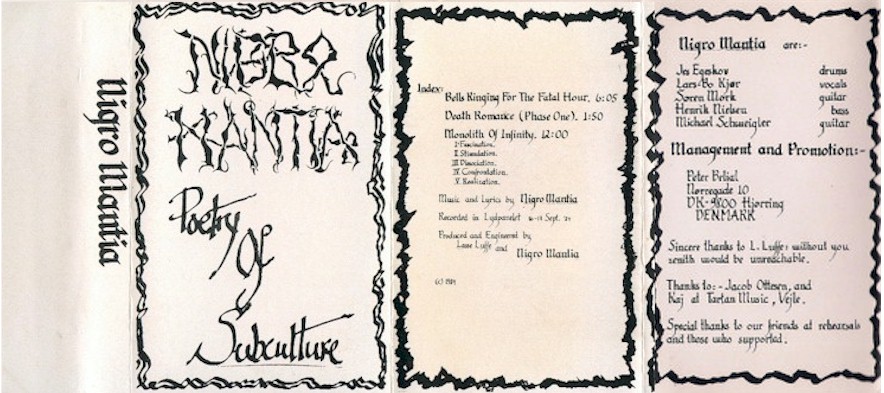 Nigro Mantia
NIGRO
MANTIA
Poetry
Of
Subculture
Index:
Bells Ringing For The Fatal Hour, 6:05
Death Romance (Phase One), 1:50
Monolith Of Infinity, 12:00
I Fascination.
II Stimulation.
III Dissociation.
IV Confrontation.
V Realization.
Music and Lyrics by Nigro Mantia
Recorded in Lydpanelet Sept.
Produced and Engineered by
Lasse Lyffe and Nigro Mantia
(C) 1991
Nigro Mantia are:-
Jes Egeskov drums
Lars-Bo Kjær vocals
Søren Mørk guitar
Henrik Nielsen bass
Michael Schweigler guitar
Management and Promotion:-
Peter Belial
Nørregade 10
DK-9800 Hjørring
DENMARK
Sincere thanks to L. Lyffe: without you
zenith would be unreachable.
Thanks to:- Jacob Ottesen, and
Kaj at Tartan Music, Vejle.
Special thanks to our friends at rehearsals
and those who supported.